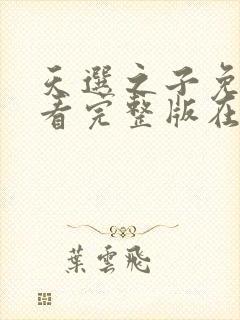 天選之子免
看完整版在
葉雲飛